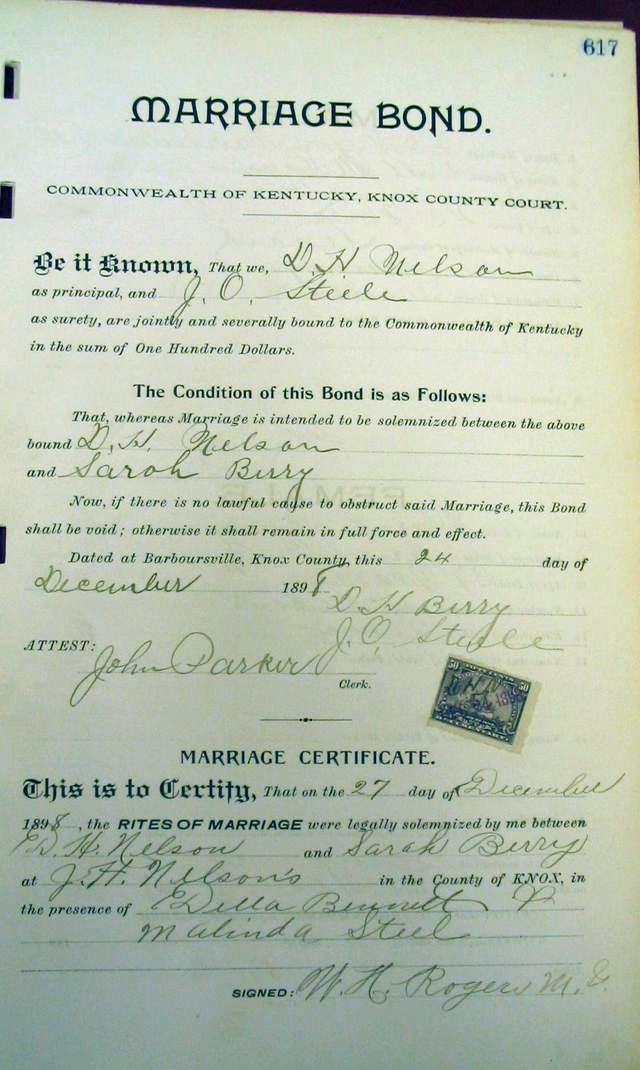 617
MARRIAGE BOND.
COMMONWEALTH OF KENTUCKY, KNOX COUNTY COURT.
Be it Known, That we, D. H Nelson
as principal, and J. O. Steele
as surety, are jointly and severally bound to the Commonwealth of Kentucky
in the sum of One Hundred Dollars.
The Condition of this Bond is as Follows:
That, whereas Marriage is intended to be solemnized between the above
bound D. H. Nelson
and Sarah Berry
Now, if there is no lawful cause to obstruct said Marriage, this Bond
shall be void; otherwise it shall remain in full force and effect.
Dated at Barboursville, Knox County, this 24 day of
December 1898
D H Berry
J. O. Steele
ATTEST:
John Parker
Clerk.
50 50
D H N
MARRIAGE CERTIFICATE.
This is to Certify, That on the 27 day of December
1898, the RITES OF MARRIAGE were legally solemnized by me between
D. H. Nelson and Sarah Berry
at J. H. Nelson's in the County of KNOX, in
the presence of Della Bennett &
Malinda Steel
SIGNED: W. H. Rogers M. G.